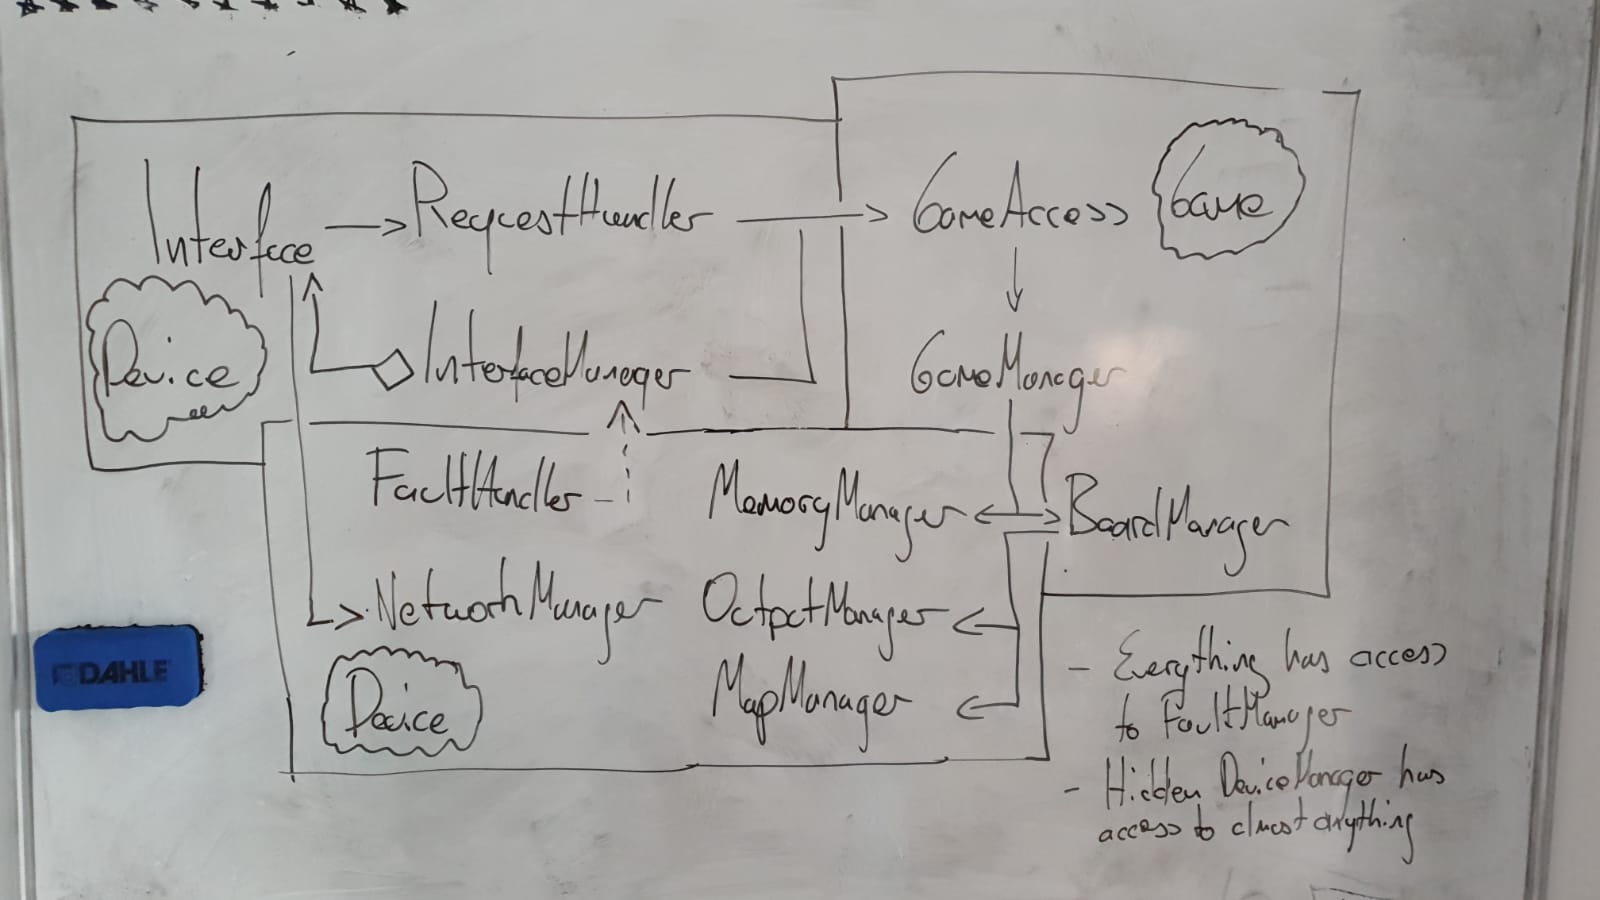 Interface
RequestHandler
GameAccess
Game
Device
InterfaceManager
GameManager
FaultHandler
MemoryManager
BoardManager
NetworkManager
OutputManager
Device
MapManager
- Everything has access
to FaultManager
- Hidden DeviceManager has
access to almost anything
DAHLE